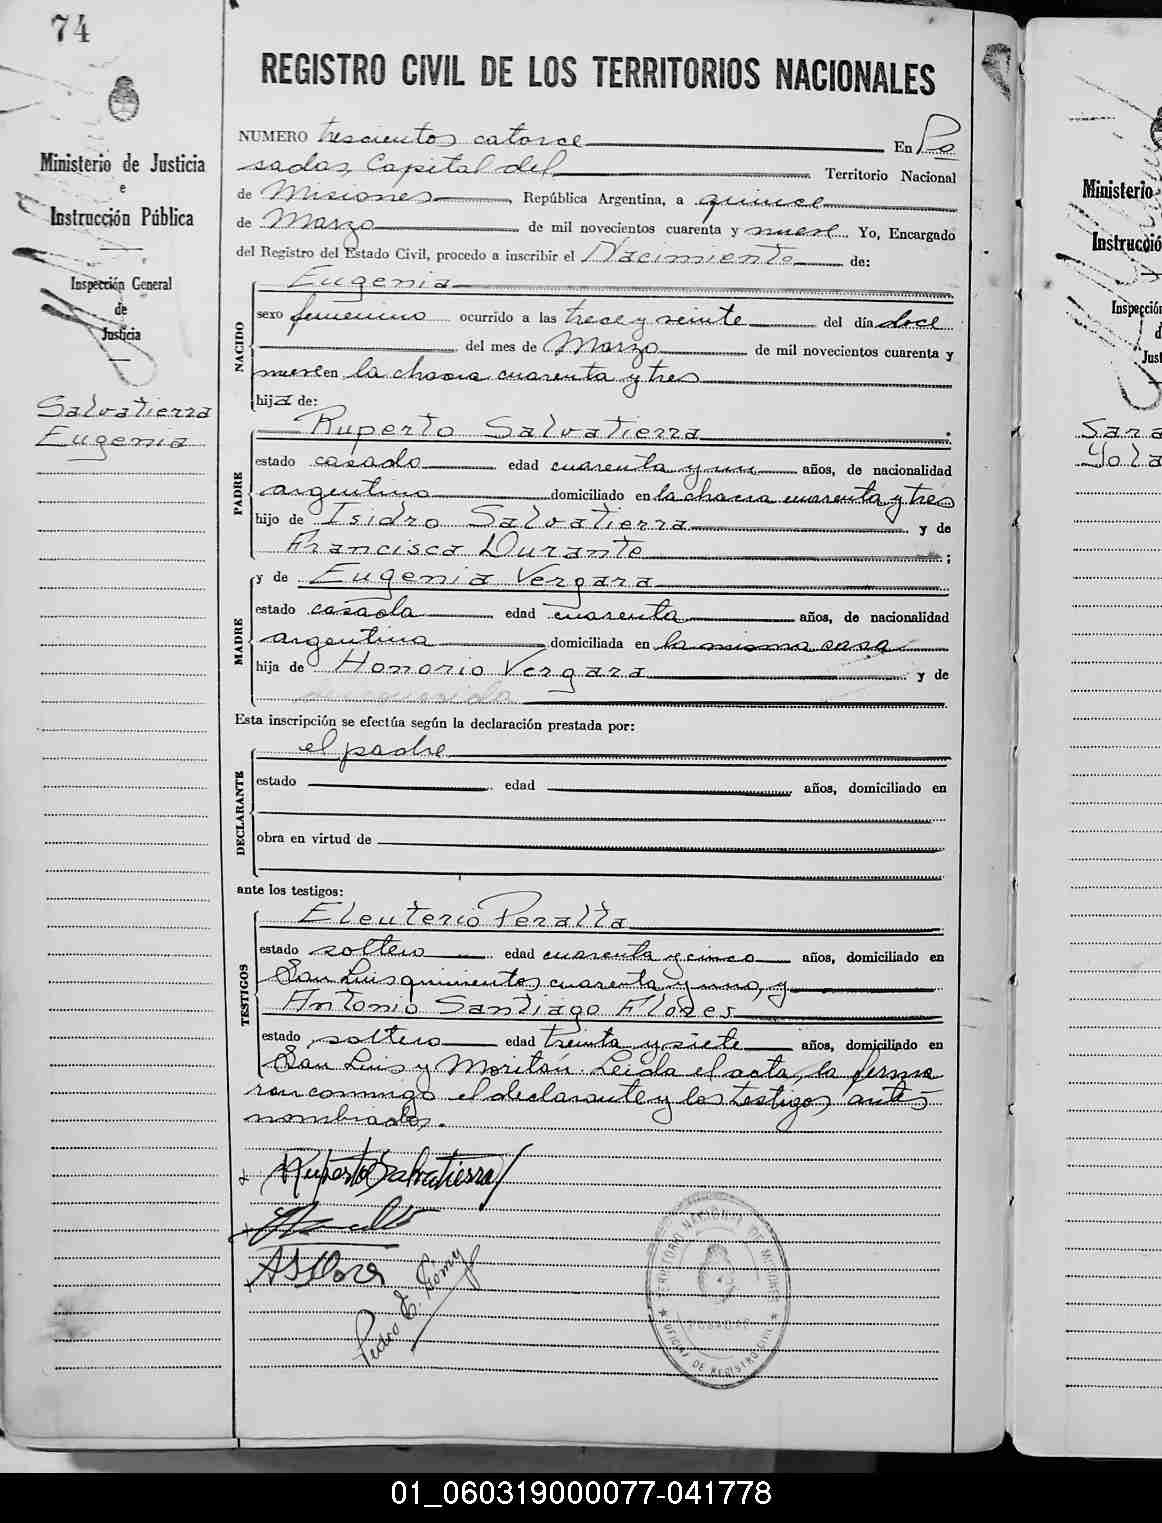 74
REGISTRO CIVIL DE LOS TERRITORIOS NACIONALES
Ministerio de Justicia
e
Instrucción Pública
Inspección General
de
Justicia
Salvatierra
Eugenia
NUMERO trescientos catorce En Po
sadas, Capital del Territorio Nacional
de Misiones República Argentina, a quince
de Marzo de mil novecientos cuarenta y nueve Yo, Encargado
del Registro del Estado Civil, procedo a inscribir el Nacimiento de:
NACIDO
Eugenia
sexo femenino ocurrido a las trece y veinte del día doce
del mes de Marzo de mil novecientos cuarenta y
nueve en la chacra cuarenta y tres
hija de:
PADRE
Ruperto Salvatierra ;
estado casado edad cuarenta y un años, de nacionalidad
argentino domiciliado en la chacra cuarenta y tres
hijo de Isidro Salvatierra y de
Francisca Durante ;
MADRE
y de Eugenia Vergara
estado casada edad cuarenta años, de nacionalidad
argentina domiciliada en la misma casa
hija de Honorio Vergara y de
Esta inscripción se efectúa según la declaración prestada por:
DECLARANTE
el padre
estado edad años, domiciliado en
obra en virtud de
ante los testigos:
TESTIGOS
Eleuterio Peralta
estado soltero edad cuarenta y cinco años, domiciliado en
San Luis quinientos cuarenta y uno, y
Antonio Santiago Flores
estado soltero edad treinta y siete años, domiciliado en
San Luis y Moritán. Leida el acta, la firma
ron conmigo el declarante y los testigos antes
nombrados.
Ruperto Salvatierra
ASFlores
Pedro E. Gomy
TERRITORIO NACIONAL DE MISIONES
POSADAS
★ OFICINA DE REGISTRO CIVIL ★
Ministerio
Instrucció
Inspección
d
Just
Sara
Yola
01_060319000077-041778